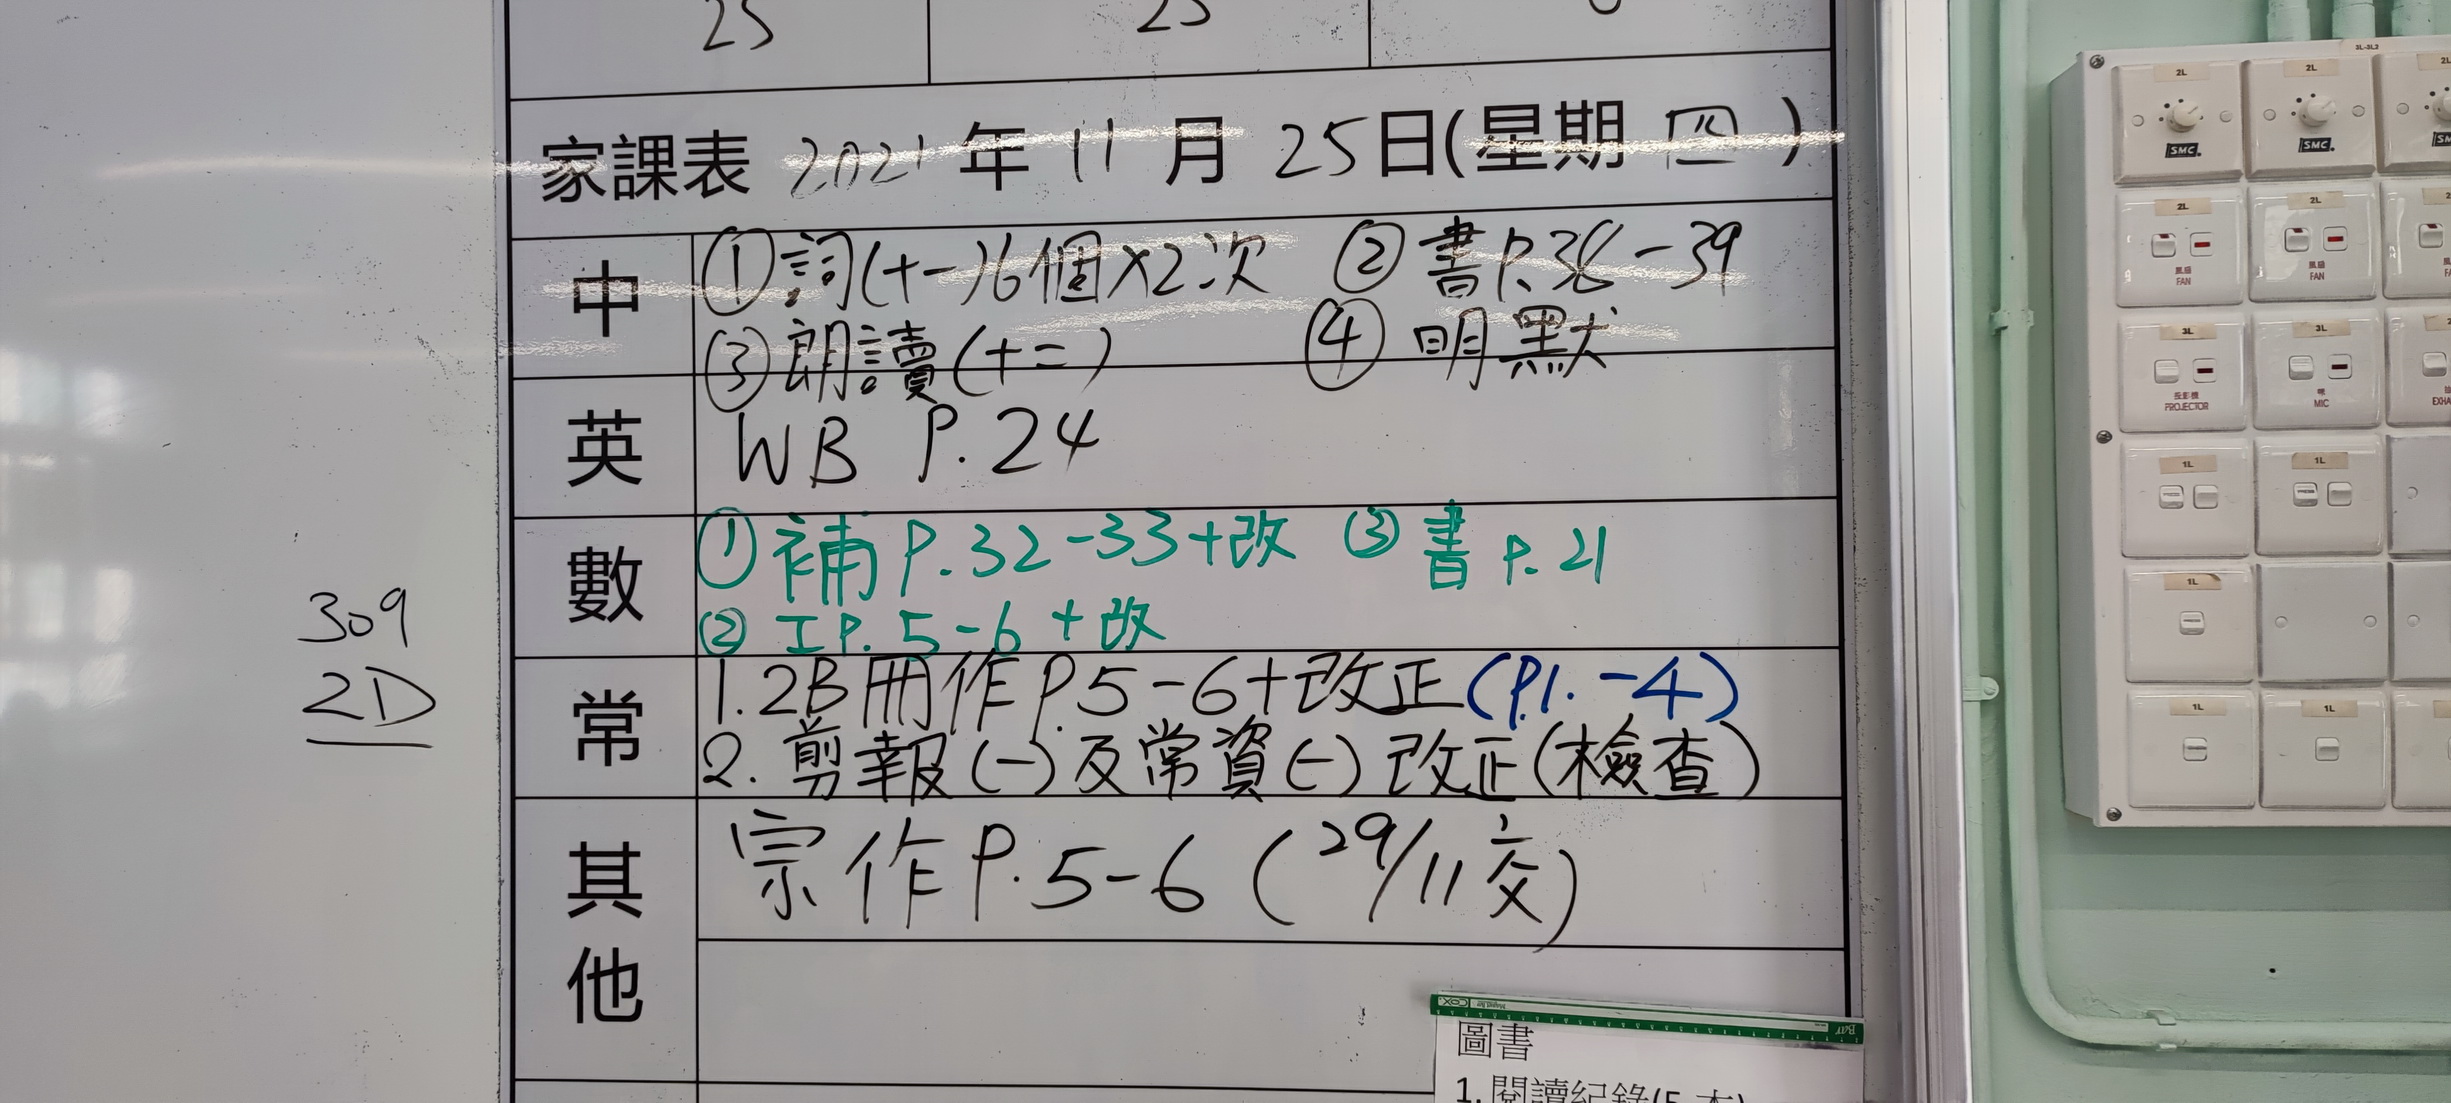 25 25
家課表 2021 年 11 月 25日(星期 四 )
中 ①詞(十一)6個×2次 ②書P.38-39
③朗讀(十二) ④明默
英 WB P.24
數 ①補P.32-33+改 ③書P.21
②工P.5-6+改
常 1.2B冊作P.5-6+改正(P.1.-4)
2.剪報(一)及常資(一)改正(檢查)
其他 宗作P.5-6(29/11交)
309
2D
圖書
1.閱讀紀錄(5本)
COX
3L-3L2
2L 2L 2L
SMC SMC
2L 2L
風扇 風扇
FAN FAN
3L 3L
投影機 咪
PROJECTOR MIC
1L 1L
1L
1L 1L